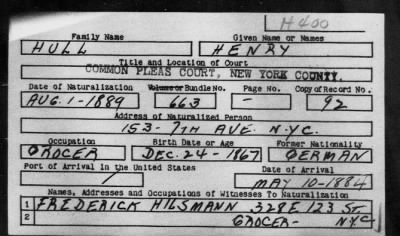 H400
Family Name Given Name or Names
HULL HENRY
Title and Location of Court
COMMON PLEAS COURT, NEW YORK COUNTY.
Date of Naturalization Volume or Bundle No. Page No. Copy of Record No.
AUG. 1-1889 663 - 92
Address of Naturalized Person
153- 7TH AVE. N.Y.C.
Occupation Birth Date or Age Former Nationality
GROCER DEC. 24-1867 GERMAN
Port of Arrival in the United States Date of Arrival
/ MAY 10-1884
Names, Addresses and Occupations of Witnesses To Naturalization
1 FREDERICK HILSMANN 328 E 123 ST.
2 GROCER- N.Y.C.